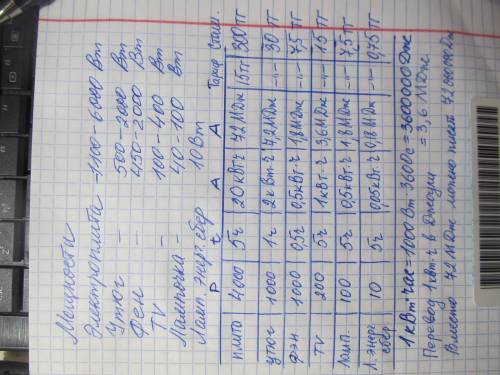 Мощности
Электроплита - 1100 - 6000 Вт
Утюг - 500 - 2000 Вт
Фен - 450 - 2000 Вт
TV - 100 - 400 Вт
Лампочка - 40 - 100 Вт
Ламп. энер. сбер 10 Вт
P t A A Тариф Стоим.
плита 4000 5ч 20 кВт·ч 72 МДж 15тг 300 тг
утюг 1000 1ч 2 кВт·ч 7,2 МДж -"- 30 тг
фэн 1000 0,5ч 0,5 кВт·ч 1,8 МДж -"- 7,5 тг
TV 200 5ч 1 кВт·ч 3,6 МДж -"- 15 тг
Ламп. 100 5ч 0,5 кВт·ч 1,8 МДж -"- 7,5 тг
Л. энерг. сбер 10 5ч 0,05 кВт·ч 0,18 МДж -"- 0,75 тг
1 кВт·час = 1000 Вт · 3600 с = 3600000 Дж
Перевод 1 квт·ч в Джоули = 3,6 МДж
Вместо 72 МДж можно писать 72 000 000 Дж